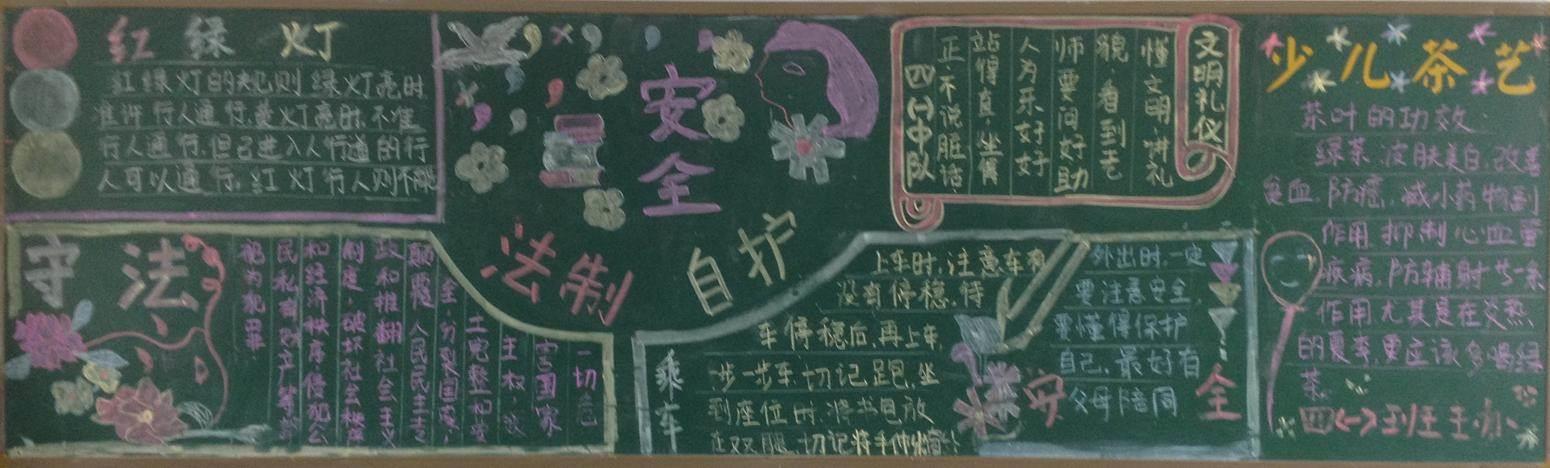 红绿灯
红绿灯的规则 绿灯亮时
准许行人通行,黄灯亮时,不准
行人通行,但已进入人行道的行
人可以通行,红灯行人则不能
安全
法制
自护
文明礼仪
懂文明,讲礼
貌,看到老
师要问好,助
人为乐好好
站得直,坐得
正,不说脏话
四(一)中队
少儿茶艺
茶叶的功效
绿茶 皮肤美白,改善
贫血,防癌,减小药物副
作用 抑制心血管
疾病,防辐射 等一系
作用 尤其是在炎热
的夏季,更应该多喝绿
茶
四(一)班 主办
守法
一切危
害国家
主权,
土完整和安
全,分裂国家,
颠覆人民民主专
政和推翻社会主义
制度,破坏社会秩序
和经济秩序,侵犯公
民私有财产等等
都为犯罪
乘车
上车时,注意车有
没有停稳,待
车停稳后,再上车,
步一步车,切记跑,坐
到座位时,将书包放
在双腿,切记将手伸
安全
外出时,一定
要注意安全,
要懂得保护
自己,最好有
父母陪同